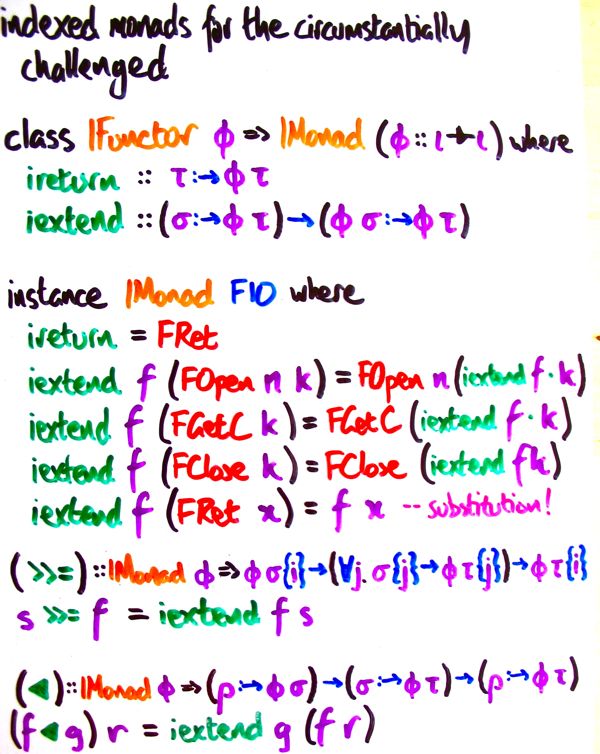 indexed monads for the circumstantially
challenged
class IFunctor ϕ => IMonad (ϕ :: ι ⇸ ι) where
ireturn :: τ :→ ϕ τ
iextend :: (σ :→ ϕ τ) → (ϕ σ :→ ϕ τ)
instance IMonad FIO where
ireturn = FRet
iextend f (FOpen n k) = FOpen n (iextend f · k)
iextend f (FGetC k) = FGetC (iextend f · k)
iextend f (FClose k) = FClose (iextend f k)
iextend f (FRet x) = f x -- substitution!
(>>=) :: IMonad ϕ => ϕ σ{i} → (∀j. σ{j} → ϕ τ{j}) → ϕ τ{i}
s >>= f = iextend f s
(◂) :: IMonad ϕ => (ρ :→ ϕ σ) → (σ :→ ϕ τ) → (ρ :→ ϕ τ)
(f ◂ g) r = iextend g (f r)